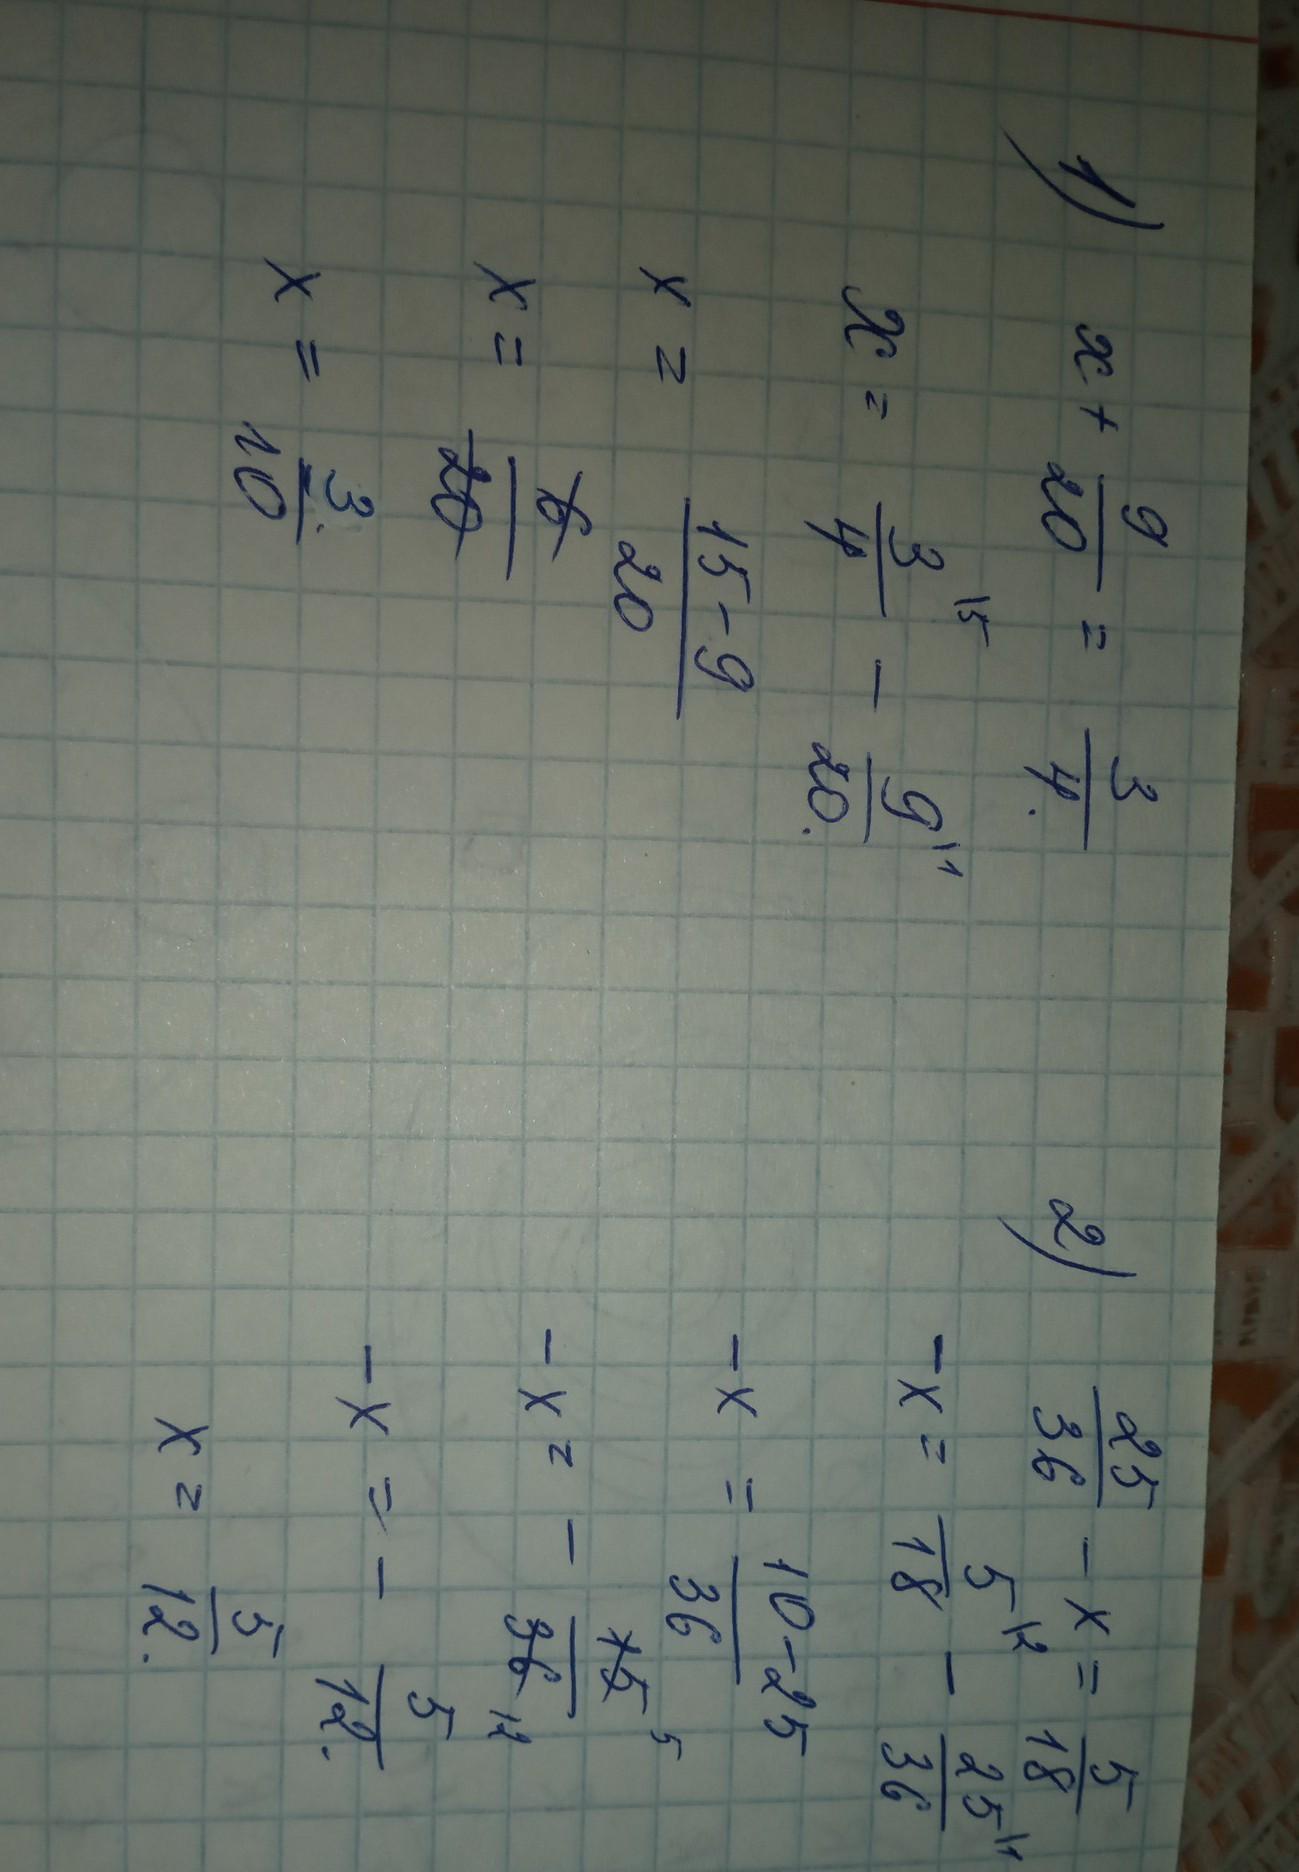 1) x + 9/20 = 3/4.
x = 3/4 \5 - 9/20 \1.
x = 15-9/20
x = 6/20
x = 3/10.
2) 25/36 - x = 5/18
-x = 5/18 \2 - 25/36 \1
-x = 10-25/36
-x = - 15/36 5 12
-x = - 5/12.
x = 5/12.